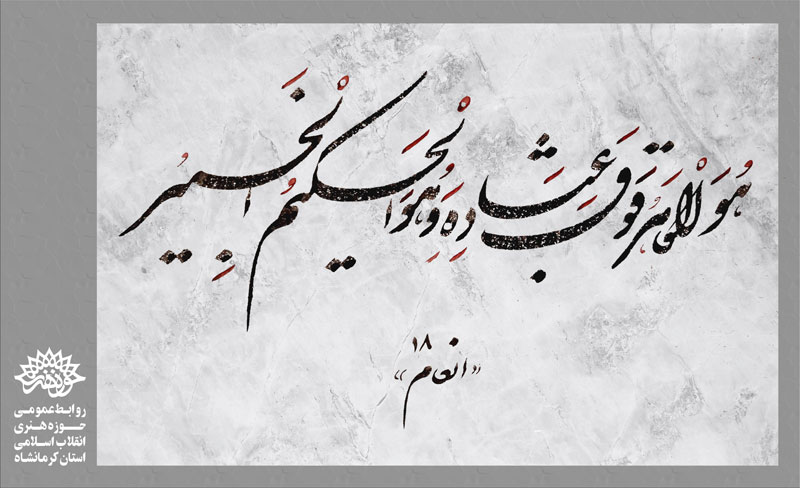 هُوَ الْقاهِرُ فَوقَ عِبادِهِ وَهُوَ الْحَکیمُ الْخَبیرُ
«انعام ۱۸»
حوزه هنری
روابط عمومی
حوزه هنری
انقلاب اسلامی
استان کرمانشاه